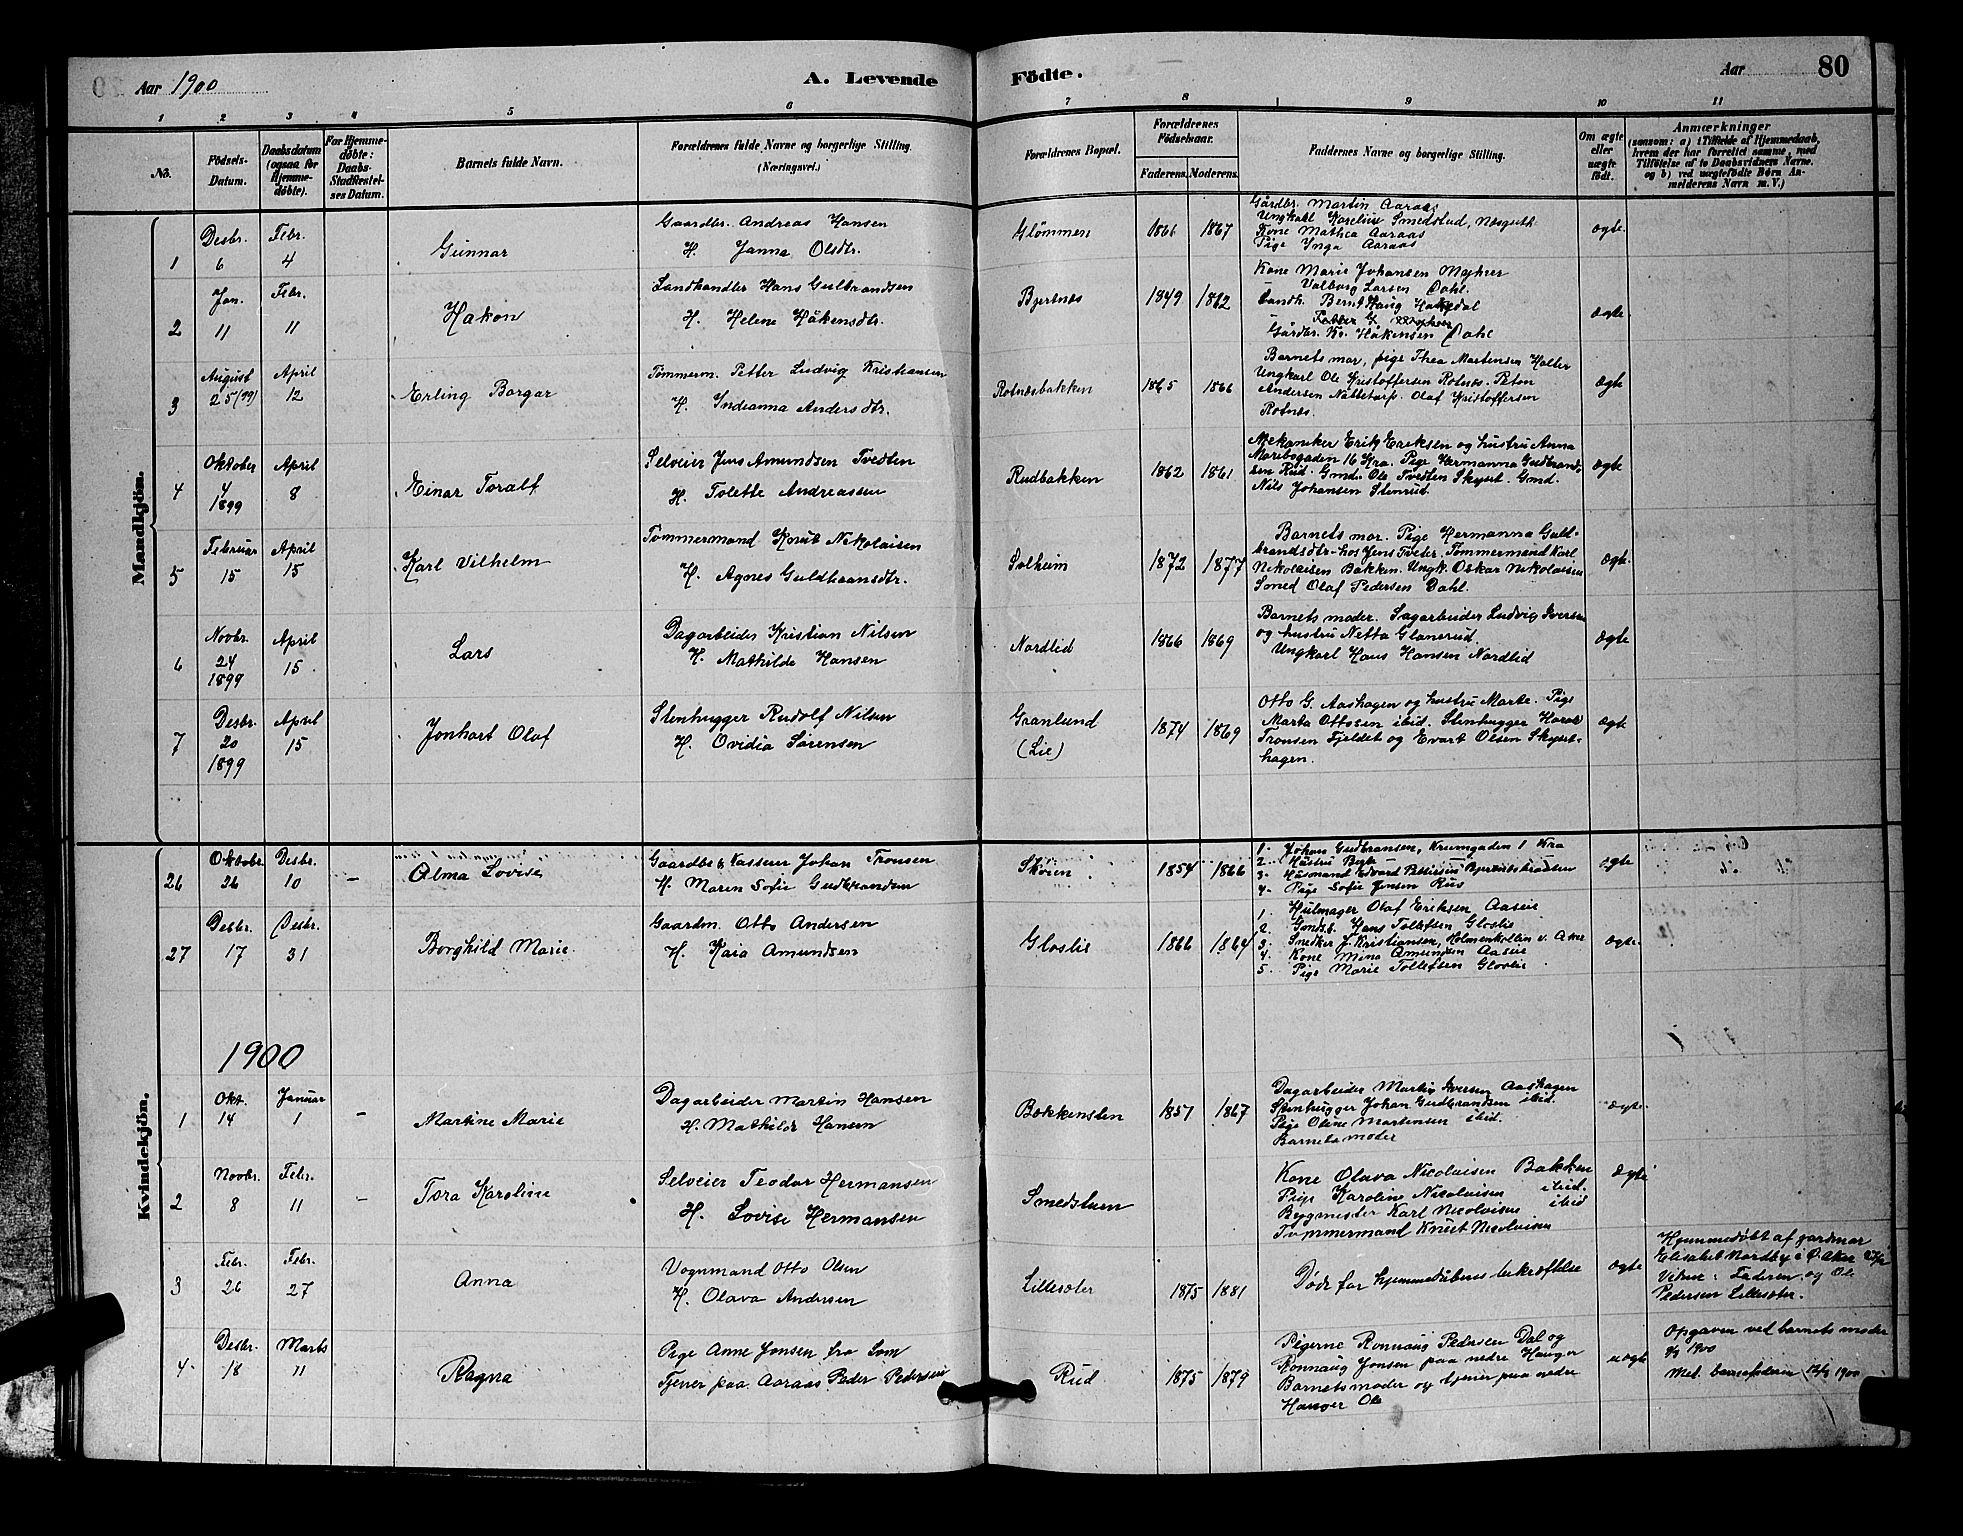 Aar 1900
A. Levende Födte.
Aar
80
1 2 3 4 5 6 7 8 9 10 11
No.
Födsels-Datum.
Daabsdatum (ogsaa for Hjemme-döbte).
For Hjemme-döbte: Daabs-Stadfæstel-ses Datum.
Barnets fulde Navn.
Forældrenes fulde Navne og borgerlige Stilling. (Næringsvei.)
Forældrenes Bopæl.
Forældrenes Födselsaar.
Faderens. Moderens.
Faddernes Navne og borgerlige Stilling.
Om ægte eller uægte födt.
Anmærkninger
(saasom: a) i Tilfælde af Hjemmedaab, hvem der har forrettet samme, med Tilföielse af to Daabsvidners Navne. og b) ved uægtefödte Börn An-melderens Navn m. V.)
Mandkjön.
1 Desbr. 6 Febr. 4 Gunnar
Gaardbr. Andreas Hansen
H. Janna Olsdtr.
Glömmen 1866 1867
Gårdbr. Martin Aaraas
Ungkarl Karelius Smedstad,
Kone Mathea Aaraas
Pige Inga Aaraas
ægte.
2 Jan. 11 Febr. 11 Hakon
Landhandler Hans Gulbrandsen
H. Helene Håkensdtr.
Bjertnæs 1849 1862
Kone Marie Johansen
Valborg Larsen Dahl.
Landh. Bernt Haug Hakedal
Gårdbr. Kr. Håkensen Dahl
ægte.
3 August 25 (99) April 12 Erling Borgar
Tömmerm. Petter Ludvig Kristiansen
H. Indianna Andersdtr.
Rotnæsbakken 1865 1866
Barnets mor, pige Thea Martensen Holter
Ungkarl Ole Kristoffersen Rotnæs.
Andersen Olaf Kristoffersen
Rotnæs.
ægte
4 Oktober 4 1899 April 8 Einar Toralf
Selveier Jens Amundsen Tveten
H. Tolette Andreassen
Rudbakken 1862 1861
Mekaniker Erik Eriksen og hustru Anna
Maribogaden 16 Kra. Pige Hermanna Gudbrand-
sen Rud. Gmd. Ole Tvedten Skyset. Gmd.
Nils Johansen Stenrud.
ægte
5 Februar 15 April 15 Karl Vilhelm
Tömmermand Knut Nikolaisen
H. Agnes Guldhaansdtr.
Solheim 1872 1877
Barnets mor. Pige Hermanna Guld-
brandsdtr. hos Jens Tveter. Tömmermand Karl
Nikolaisen Bakken. Ungk. Oskar Nikolaisen
Smed Olaf Pedersen Dahl.
ægte.
6 Novbr. 24 1899 April 15 Lars
Dagarbeider Kristian Nilsen
H. Mathilde Hansen
Nordlid 1866 1869
Barnets moder. Sagarbeider Ludvig Iversen
og hustru Netta Glanerud
Ungkarl Hans Hansen Nordlid
ægte
7 Desbr. 20 1899 April 15 Jonhart Olaf
Stenhugger Rudolf Nilsen
H. Ovidia Sørensen
Granlund (Lie) 1874 1869
Otto G. Aashagen og hustru Marte. Pige
Marta Ottosen ibid. Stenhugger Haral
Tronsen Fjeldet og Evart Olsen Skyset-
hagen.
ægte
Kvindekjön.
26 Oktobr. 26 Desbr. 10 – Alma Lovise
Gaardbr. & Kasserer Johan Tronsen
H. Maren Sofie Gudbrandsen
Skøien 1854 1866
1. Johan Gudbransen, Krumgaden 1 Kra
2. Hustru
3. Husmand Edvard Pettersen
4. Pige Sofie Jensen Rus
ægte
27 Desbr. 17 Desbr. 31 Borghild Marie
Gaardm. Otto Andersen
H. Kaia Amundsen
Gloslie 1866 1864
1. Hulmager Olaf Eriksen Aaseie
2. Gmdsb. Hans Tollefsen Gloslie
3. Snedker J. Kristiansen, Holmenkollen v. Aker
4. Kone Mina Amundsen Aaseie
5. Pige Marie Tollefsen Gloslie
ægte.
1900
1 Okt. 14 Januar 1 – Martine Marie
Dagarbeider Martin Hansen
H. Mathilde Hansen
Bækkensten 1857 1867
Dagarbeider Martin Iversen Aashagen
Stenhugger Johan Gudbrandsen ibid.
Pige Oline Martensen ibid.
Barnets moder
ægte.
2 Novbr. 8 Febr. 11 – Tora Karoline
Selveier Teodor Hermansen
H. Lovise Hermansen
Smedstuen
Kone Olava Nicolaisen Bakken
Pige Karoline Nicolaisen ibid.
Bygmester Karl Nicolaisen ibid
Tømmermand Knut Nicolaisen
ægte
3 Febr. 26 Febr. 27 Anna
Vognmand Otto Olsen
H. Olava Andersen
Lillesæter 1875 1881
Døde før hjemmedåbens bekræftelse
ægte
Hjemmedøbt af gardmor
Elisabet Nordby i Ø. Aker
Vidner: Faderen og Ole
Pedersen Lillesæter.
4 Desbr. 18 Marts 11 Ragna
Pige Anne Jonsen fra Lom
Tjener paa Aaraas Peder Pedersen
Rud 1875 1879
Pigerne Ronnaug Pedersen Dal og
Ronnaug Jonsen paa nedre Hauger
Barnets moder og tjener paa nedre
Hauger Ole
uægte
Opgaven ved barnets moder
1900
Mel. barnefaderen 1900